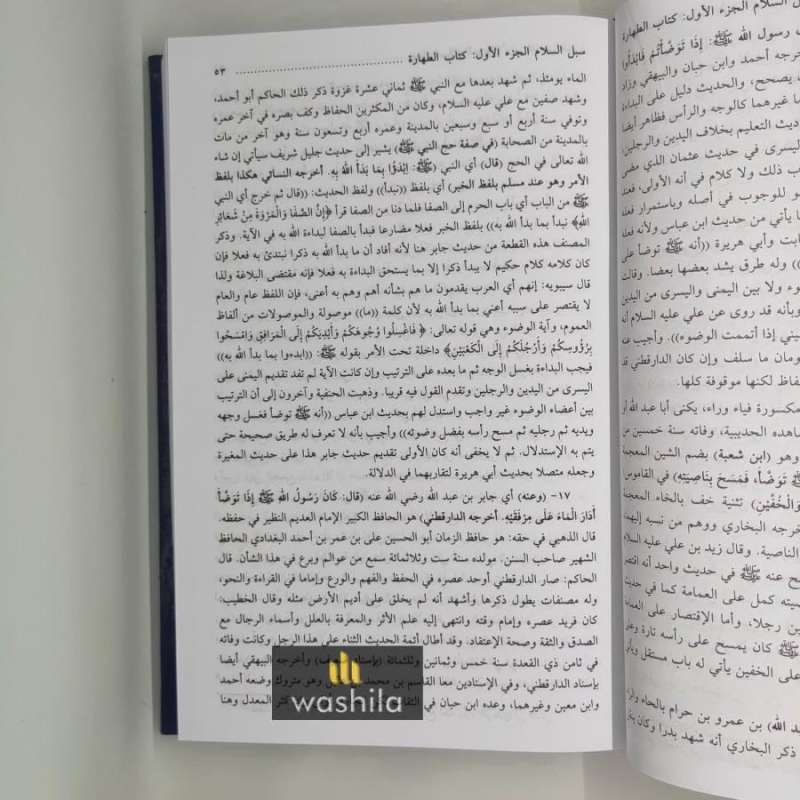 سبل السلام الجزء الأول: كتاب الطهارة ................................................ ٥٣
الماء يومئذ، ثم شهد بعدها مع النبي ﷺ ثماني عشرة غزوة ذكر ذلك الحاكم أبو أحمد،
وشهد صفين مع علي عليه السلام، وكان من المكثرين الحفاظ وكف بصره في آخر عمره
وتوفي سنة أربع أو سبع وسبعين بالمدينة وعمره أربع وتسعون سنة وهو آخر من مات
بالمدينة من الصحابة (في صفة حج النبي ﷺ) يشير إلى حديث جليل شريف سيأتي إن شاء
الله تعالى في الحج (قال) أي النبي (ﷺ: ابْدَؤُا بِمَا بَدَأَ اللهُ بِهِ. أخرجه النسائي هكذا بلفظ
الأمر وهو عند مسلم بلفظ الخبر) أي بلفظ ((نبدأ)) ولفظ الحديث: ((قال ثم خرج أي النبي
ﷺ من الباب أي باب الحرم إلى الصفا فلما دنا من الصفا قرأ ﴿إِنَّ الصَّفَا وَالْمَرْوَةَ مِنْ شَعَائِرِ
اللهِ﴾ نبدأ بما بدأ الله به)) بلفظ الخبر فعلا مضارعا فبدأ بالصفا لبداءة الله به في الآية. وذكر
المصنف هذه القطعة من حديث جابر هنا لأنه أفاد أن ما بدأ الله به ذكرا نبتدئ به فعلا فإن
كان كلامه كلام حكيم لا يبدأ ذكرا إلا بما يستحق البداءة به فعلا فإنه مقتضى البلاغة ولذا
قال سيبويه: إنهم أي العرب يقدمون ما هم بشأنه أهم وهم به أعنى، فإن اللفظ عام والعام
لا يقتصر على سببه أعني بما بدأ الله به لأن كلمة ((ما)) موصولة والموصولات من ألفاظ
العموم، وآية الوضوء وهي قوله تعالى: ﴿ فَاغْسِلُوا وُجُوهَكُمْ وَأَيْدِيَكُمْ إِلَى الْمَرَافِقِ وَامْسَحُوا
بِرُؤُوسِكُمْ وَأَرْجُلَكُمْ إِلَى الْكَعْبَيْنِ﴾ داخلة تحت الأمر بقوله ﷺ: ((ابدءوا بما بدأ الله به))
فيجب البداءة بغسل الوجه ثم ما بعده على الترتيب وإن كانت الآية لم تفد تقديم اليمنى على
اليسرى من اليدين والرجلين وتقدم القول فيه قريبا. وذهبت الحنفية وآخرون إلى أن الترتيب
بين أعضاء الوضوء غير واجب واستدل لهم بحديث ابن عباس ((أنه ﷺ توضأ فغسل وجهه
ويديه ثم رجليه ثم مسح رأسه بفضل وضوئه)) وأجيب بأنه لا تعرف له طريق صحيحة حتى
يتم به الإستدلال. ثم لا يخفى أنه كان الأولى تقديم حديث جابر هذا على حديث المغيرة
وجعله متصلا بحديث أبي هريرة لتقاربهما في الدلالة.
١٧- (وعنه) أي جابر بن عبد الله رضي الله عنه (قال: كَانَ رَسُولُ اللهِ ﷺ إِذَا تَوَضَّأَ
أَدَارَ الْمَاءَ عَلَى مِرْفَقَيْهِ. أخرجه الدارقطني) هو الحافظ الكبير الإمام العديم النظير في حفظه.
قال الذهبي في حقه: هو حافظ الزمان أبو الحسين على بن عمر بن أحمد البغدادي الحافظ
الشهير صاحب السنن. مولده سنة ست وثلاثمائة سمع من عوالم وبرع في هذا الشأن. قال
الحاكم: صار الدارقطني أوحد عصره في الحفظ والفهم والورع وإماما في القراءة والنحو،
وله مصنفات يطول ذكرها وأشهد أنه لم يخلق على أديم الأرض مثله وقال الخطيب:
كان فريد عصره وإمام وقته وانتهى إليه علم الأثر والمعرفة بالعلل وأسماء الرجال مع
الصدق والثقة وصحة الإعتقاد. وقد أطال أئمة الحديث الثناء على هذا الرجل وكانت وفاته
في ثامن ذي القعدة سنة خمس وثمانين وثلثمائة (بإسناد ضعيف) وأخرجه البيهقي أيضا
بإسناد الدارقطني، وفي الإسنادين معا القاسم بن محمد بن وهو متروك وضعه أحمد
وابن معين وغيرهما، وعده ابن حبان في الثقات كثر المعدل وهنا
washila
السلام الجزء الأول: كتاب الطهارة
رسول الله ﷺ: إِذَا تَوَضَّأْتُمْ فَابْدَأُوا
خرجه أحمد وابن حبان والبيهقي وزاد
يصحح، والحديث دليل على البداءة
غيرهما كالوجه والرأس فظاهر أيضا
ديث التعليم بخلاف اليدين والرجلين،
اليسرى في حديث عثمان الذي مضى
ب ذلك ولا كلام في أنه الأولى، فعند
للوجوب في أصله وباستمرار فعله
يأتي من حديث ابن عباس ولأنه فعله
ثابت وأبي هريرة ((أنه ﷺ توضأ على
)) وله طرق يشد بعضها بعضا. وقالت
ولا بين اليمنى واليسرى من اليدين
وبأنه قد روى عن علي عليه السلام أنه
إذا أتممت الوضوء)). وأجيب عنه
ومان ما سلف وإن كان الدارقطني
لفاظ لكنها موقوفة كلها.
مكسورة فياء وراء، يكنى أبا عبد الله أو
شاهده الحديبية، وفاته سنة خمسين من
وهو (ابن شعبة) بضم الشين المعجمة
تَوَضَّأَ، فَمَسَحَ بِنَاصِيَتِهِ) في القاموس
وَالْخُفَّيْنِ) تثنية خف بالخاء المعجمة
خرجه البخاري ووهم من نسبه إليهما
الناصية. وقال زيد بن علي عليه السلام
عنه ﷺ في حديث واحد أنه اقتصر
كمل على العمامة كما في حديث
رجلا، وأما الإقتصار على العمامة
ﷺ كان يمسح على رأسه تارة وعلى
على الخفين يأتي له باب مستقل ويأتي
عبد الله) بن عمرو بن حرام بالحاء والراء
ذكر البخاري أنه شهد بدرا وكان ينقل